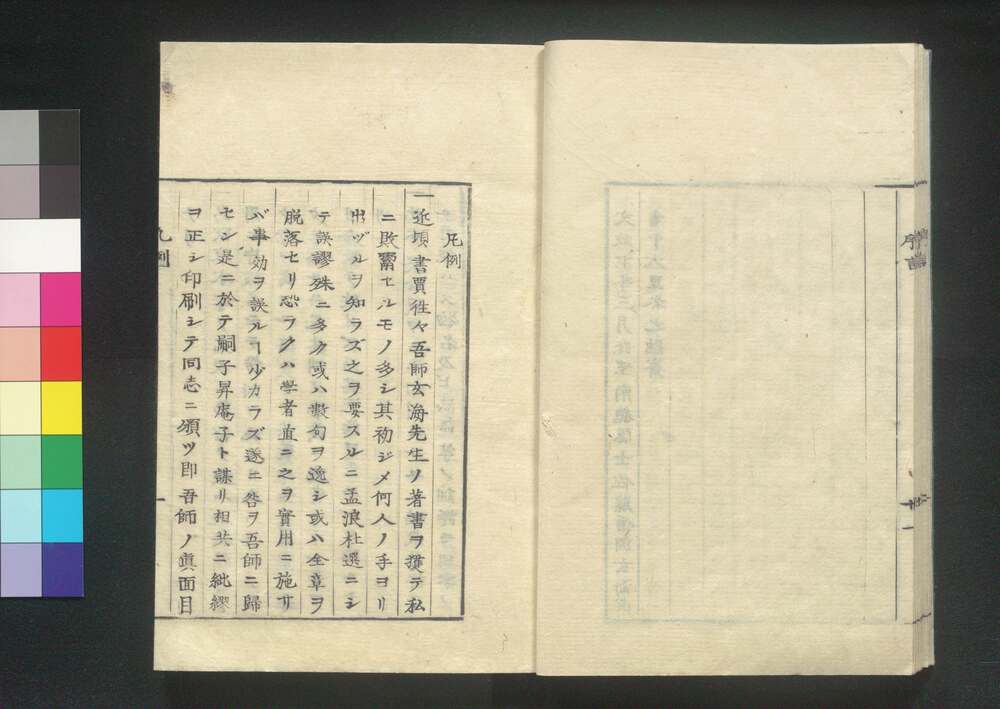 凡例
一近頃書賈徃々吾師玄海先生ノ著書ヲ獲テ私
ニ販鬻セルモノ多シ其初ジメ何人ノ手ヨリ
出ヅルヲ知ラズ之ヲ要スルニ孟浪杜選ニシ
テ誤謬殊ニ多ク或ハ数句ヲ逸シ或ハ全章ヲ
脱落セリ恐ラクハ学者直ニ之ヲ實用ニ施サ
バ事効ヲ誤ルヿ少カラズ遂ニ咎ヲ吾師ニ歸
セン是ニ於テ嗣子昇庵子ト謀リ相共ニ紕繆
ヲ正シ印刷シテ同志ニ頒ツ即吾師ノ眞面目
凡例
一